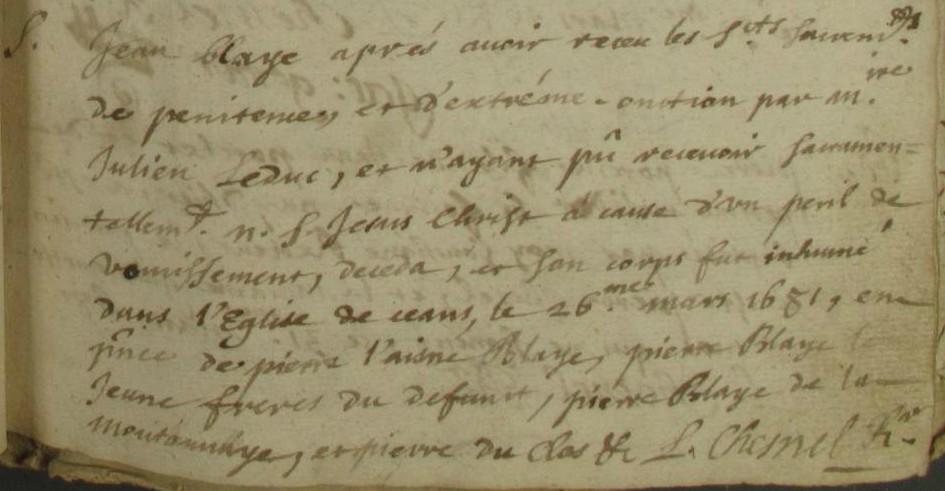 S. Jean blaye aprés avoir receu les Sts Sacrem.ts
de penitence, et d'extréme-onction par m.ire
Julien Leduc, et n'ayant pû recevoir sacramen=
tellemt. n. S. Jesus Christ à cause d'un peril de
vomissement, deceda, et son corps fut inhumé
dans l'Eglise de ceans, le 26.me mars 1681, en
pnce de pierre l'aisne Blaye, pierre Blaye le
Jeune freres du defunct, pierre Blaye de la
et pierre du Clos &c L. Chesnel Rr.